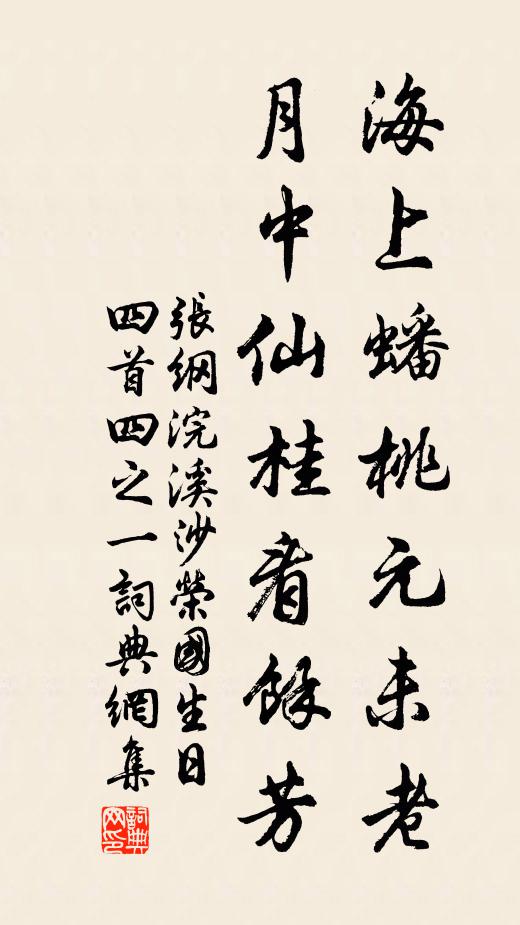 海上蟠桃元未老
月中仙桂看餘芳
張綱浣溪沙榮國生日
四首四之一詞典網集
詞典网印